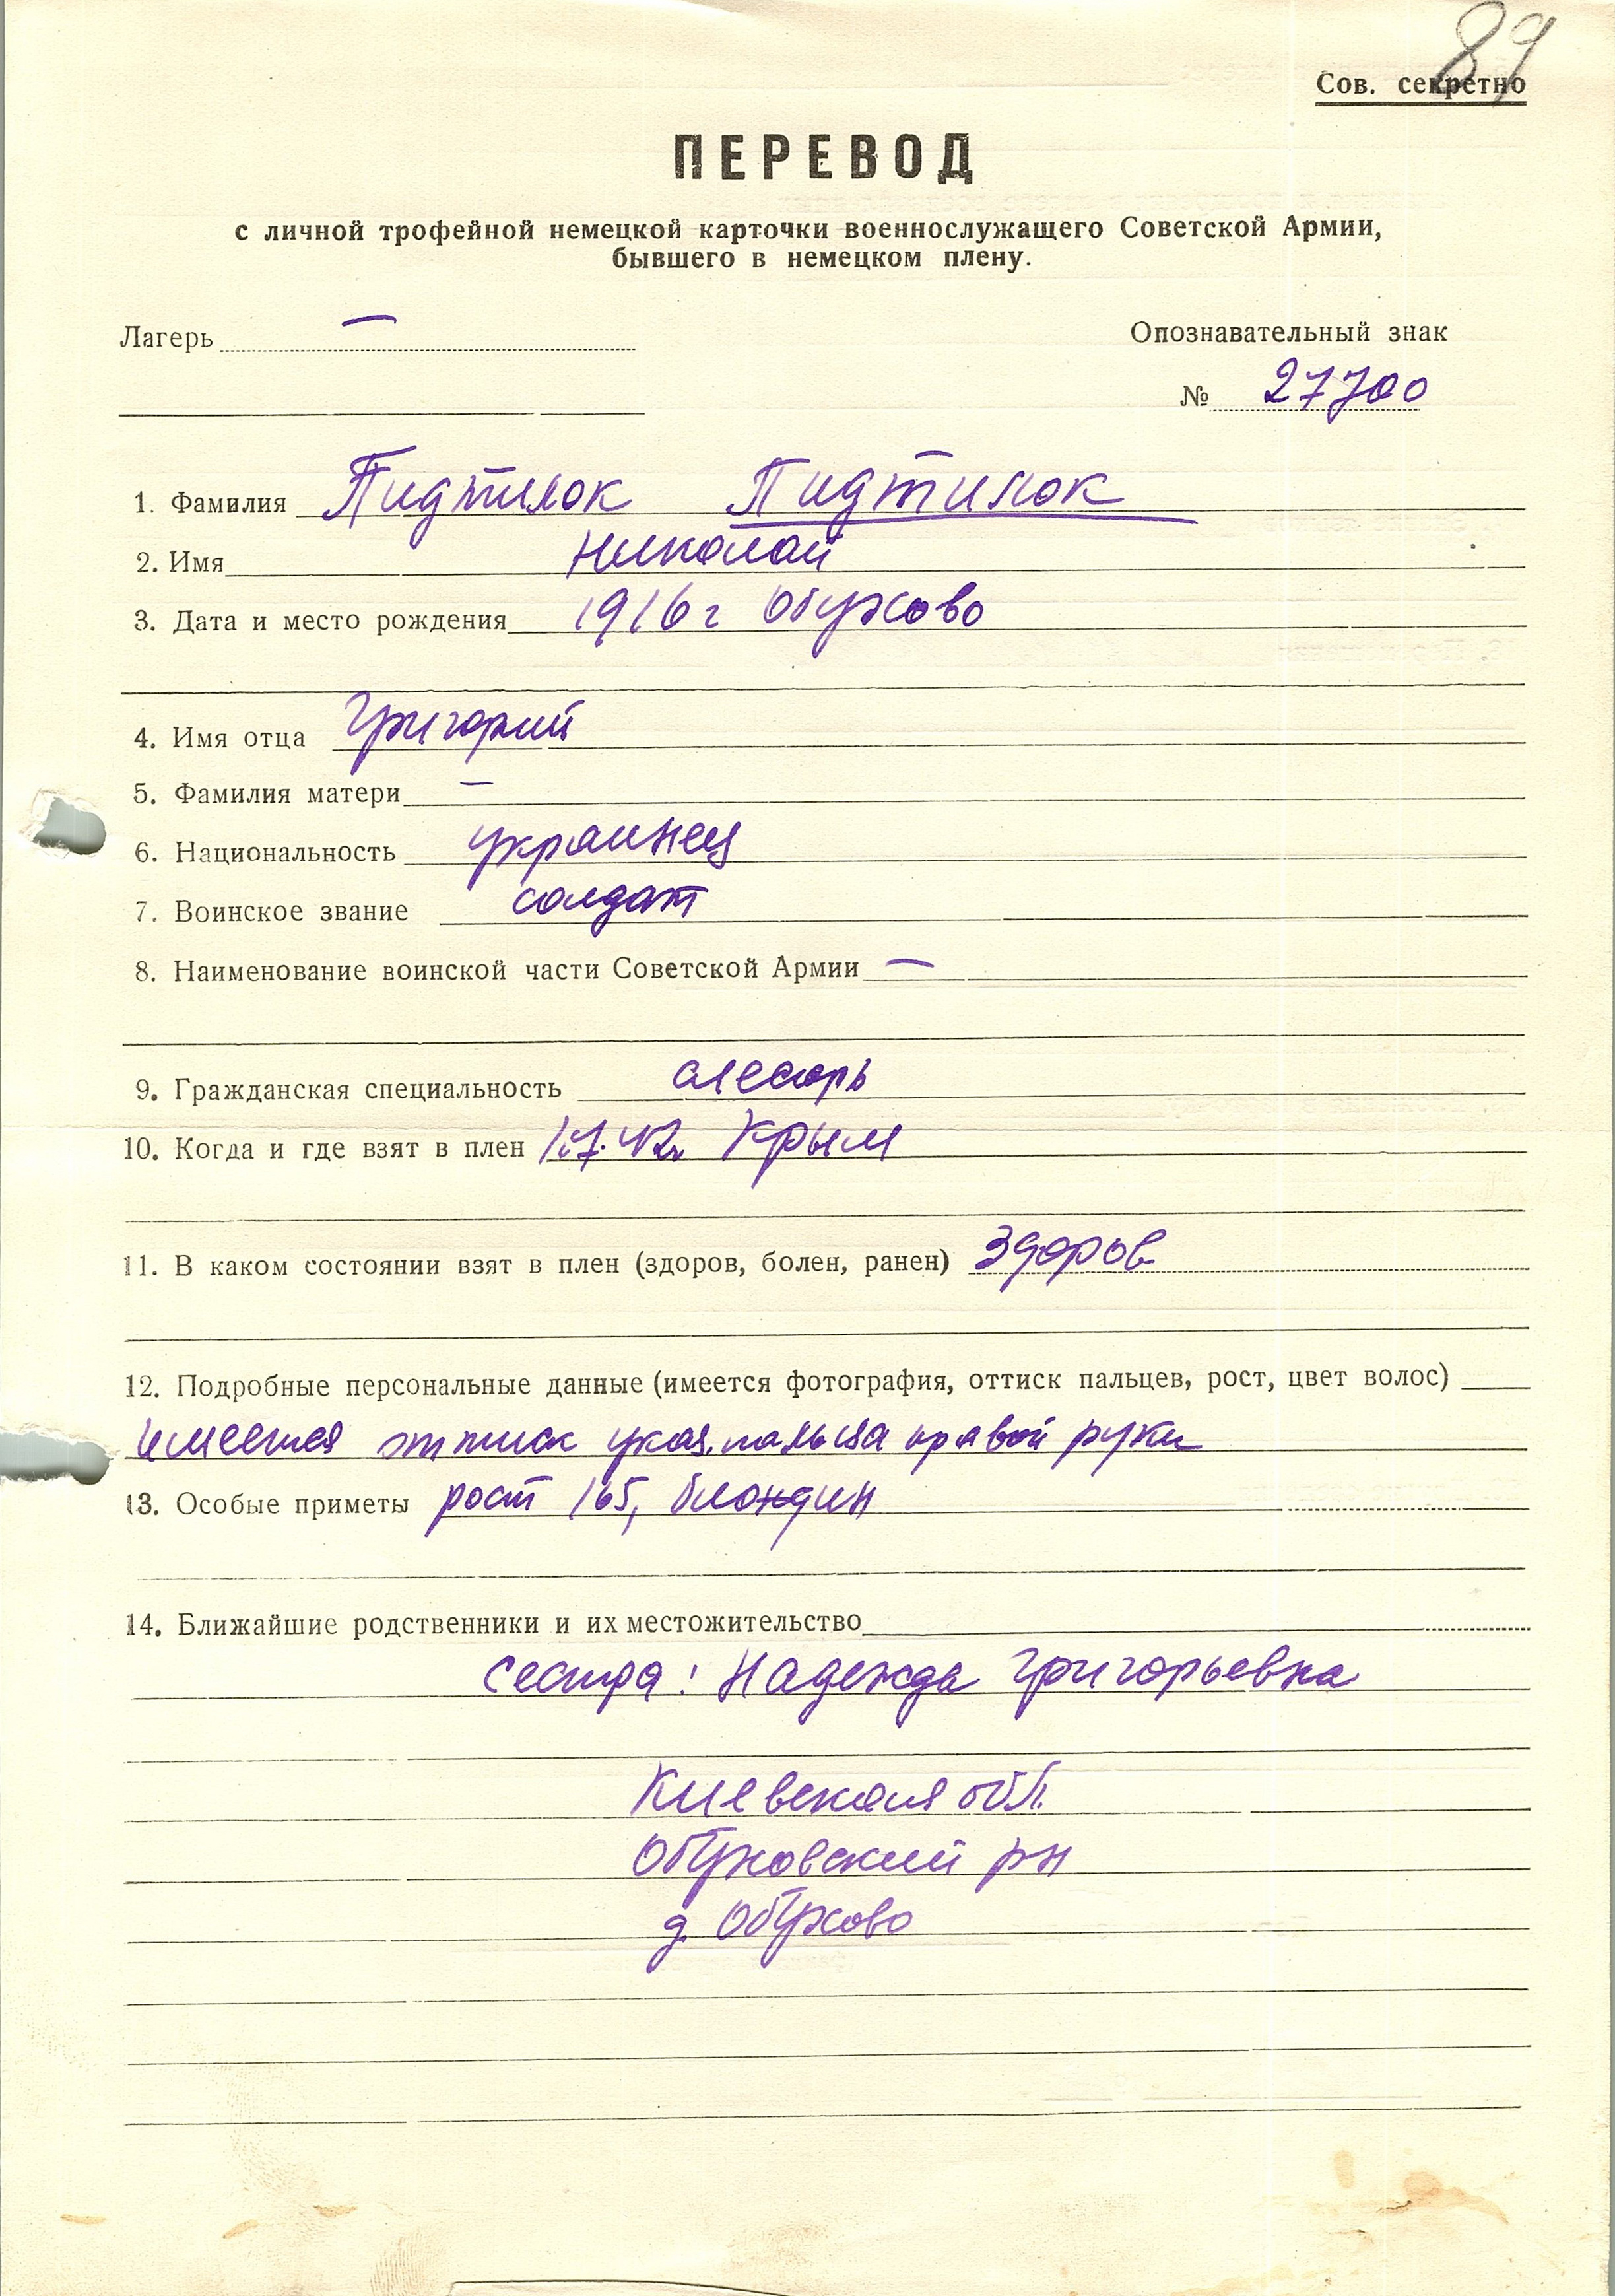 89
Сов. секретно
ПЕРЕВОД
с личной трофейной немецкой карточки военнослужащего Советской Армии,
бывшего в немецком плену.
Лагерь —
Опознавательный знак
№ 27700
1. Фамилия Пидтилок Пидтилок
2. Имя Николай
3. Дата и место рождения 1916 г Обухово
4. Имя отца Григорий
5. Фамилия матери —
6. Национальность украинец
7. Воинское звание солдат
8. Наименование воинской части Советской Армии —
9. Гражданская специальность слесарь
10. Когда и где взят в плен 1.7.42г Крым
11. В каком состоянии взят в плен (здоров, болен, ранен) здоров
12. Подробные персональные данные (имеется фотография, оттиск пальцев, рост, цвет волос)
имеется оттиск указ. пальца правой руки
13. Особые приметы рост 165, блондин
14. Ближайшие родственники и их местожительство
сестра: Надежда Григорьевна
Киевская обл.
Обуховский рн
д. Обухово